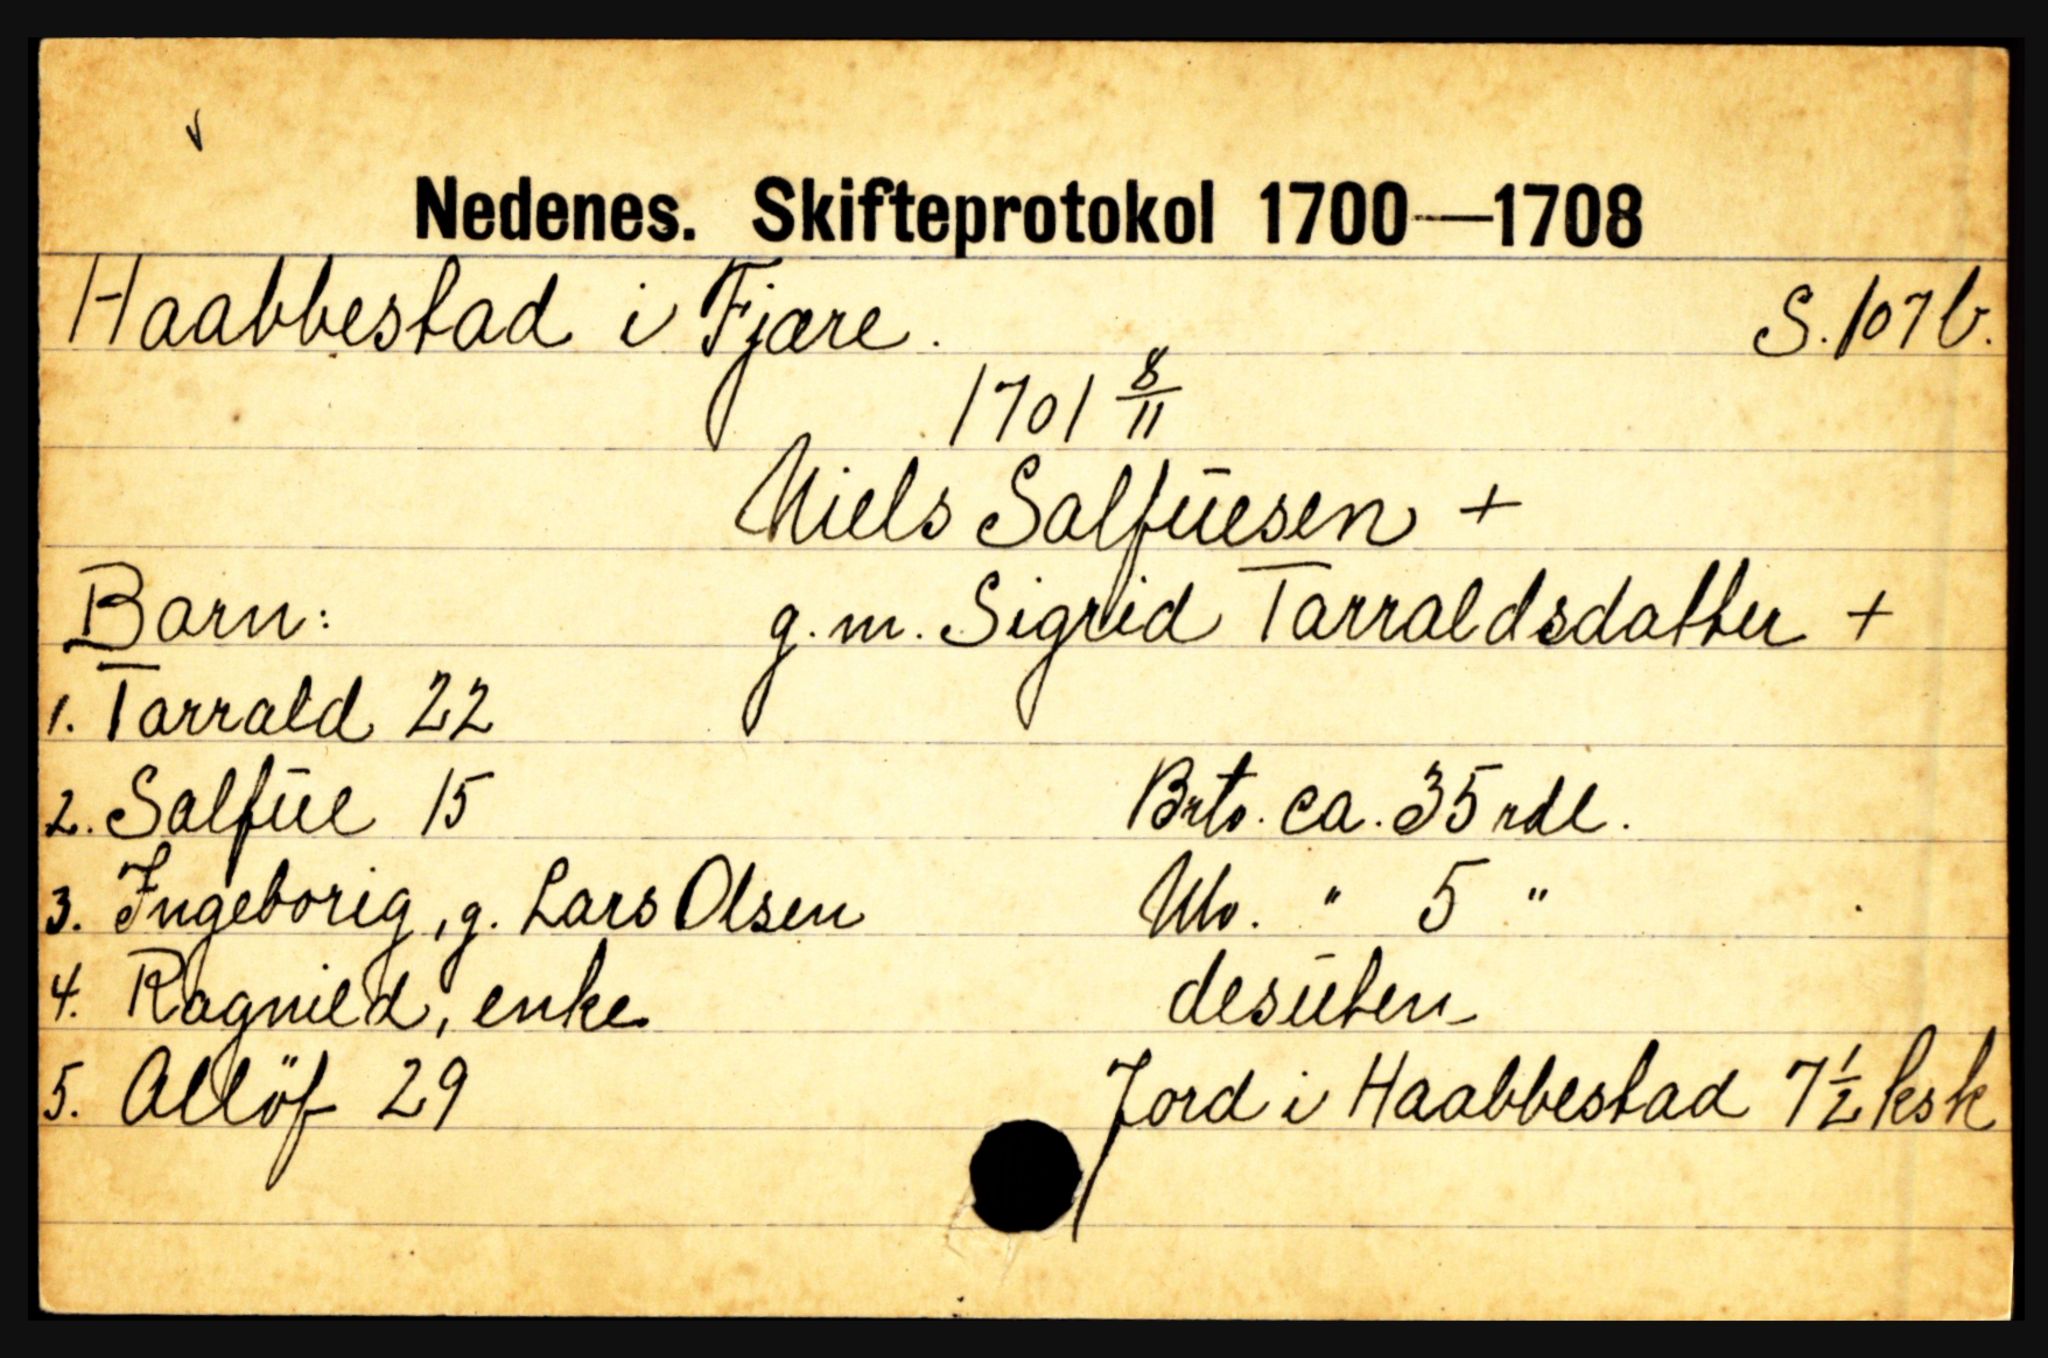 Nedenes. Skifteprotokol 1700—1708
Haabbestad i Fjære. S. 107 b.
1701 8/11
Niels Salfūesen +
Barn: g. m. Sigrid Tarraldsdatter +
1. Tarrald 22
2. Salfūe 15 Brto. ca. 35 rdl.
3. Ingeborig, g. Lars Olsen Nto. " 5 "
4. Ragnild, enke desūten
5. Allöf 29 Jord i Haabbestad 7 1/2 ksk